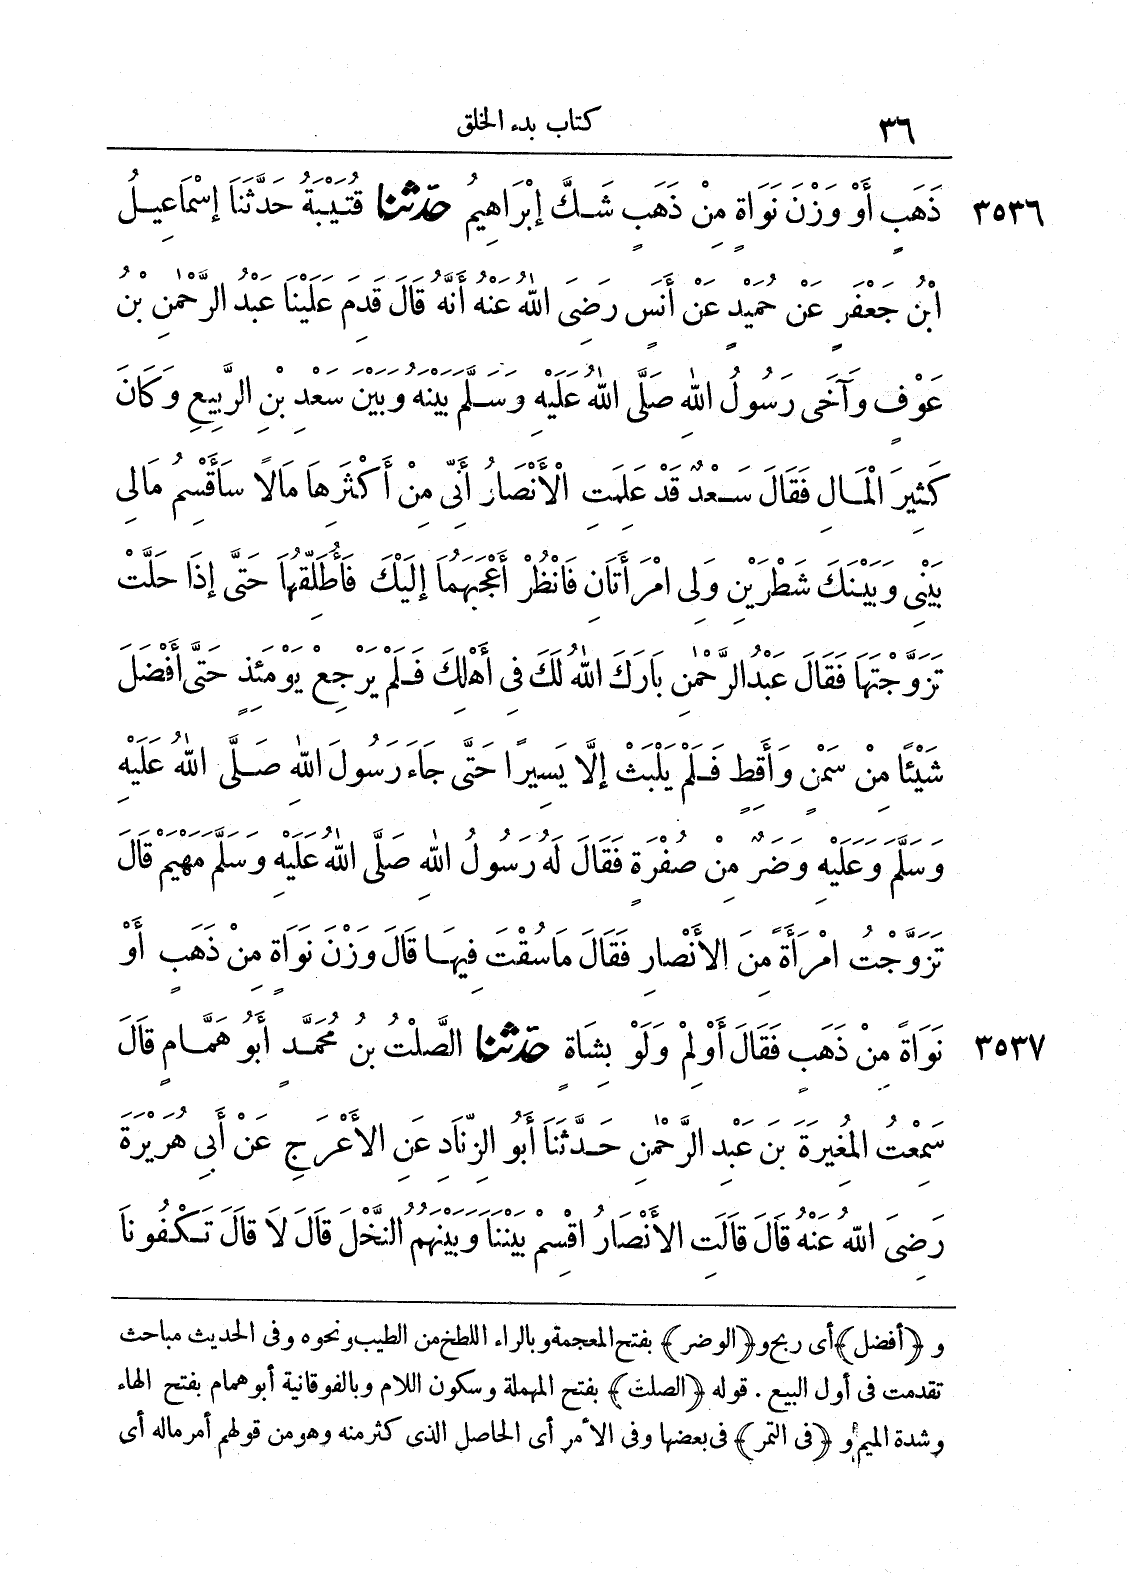 ٣٦ كتاب بدء الخلق
٣٥٣٦ ذَهَبٍ أَوْ وَزْنَ نَوَاةٍ مِنْ ذَهَبٍ شَكَّ إِبْرَاهِيمُ حدّثنا قُتَيْبَةُ حَدَّثَنَا إِسْمَاعِيلُ
ابْنُ جَعْفَرٍ عَنْ حُمَيْدٍ عَنْ أَنَسٍ رَضِىَ اللهُ عَنْهُ أَنَّهُ قَالَ قَدِمَ عَلَيْنَا عَبْدُ الرَّحْمٰنِ بْنُ
عَوْفٍ وَآخَى رَسُولُ اللهِ صَلَّى اللهُ عَلَيْهِ وَسَلَّمَ بَيْنَهُ وَبَيْنَ سَعْدِ بْنِ الرَّبِيعِ وَكَانَ
كَثِيرَ الْمَالِ فَقَالَ سَعْدٌ قَدْ عَلِمَتِ الْأَنْصَارُ أَنِّى مِنْ أَكْثَرِهَا مَالًا سَأَقْسِمُ مَالِى
بَيْنِى وَبَيْنَكَ شَطْرَيْنِ وَلِى امْرَأَتَانِ فَانْظُرْ أَعْجَبَهُمَا إِلَيْكَ فَأُطَلِّقُهَا حَتَّى إِذَا حَلَّتْ
تَزَوَّجْتَهَا فَقَالَ عَبْدُ الرَّحْمٰنِ بَارَكَ اللهُ لَكَ فِى أَهْلِكَ فَلَمْ يَرْجِعْ يَوْمَئِذٍ حَتَّى أَفْضَلَ
شَيْئًا مِنْ سَمْنٍ وَأَقِطٍ فَلَمْ يَلْبَثْ إِلَّا يَسِيرًا حَتَّى جَاءَ رَسُولَ اللهِ صَلَّى اللهُ عَلَيْهِ
وَسَلَّمَ وَعَلَيْهِ وَضَرٌ مِنْ صُفْرَةٍ فَقَالَ لَهُ رَسُولُ اللهِ صَلَّى اللهُ عَلَيْهِ وَسَلَّمَ مَهْيَمْ قَالَ
تَزَوَّجْتُ امْرَأَةً مِنَ الأَنْصَارِ فَقَالَ مَا سُقْتَ فِيهَا قَالَ وَزْنَ نَوَاةٍ مِنْ ذَهَبٍ أَوْ
٣٥٣٧ نَوَاةً مِنْ ذَهَبٍ فَقَالَ أَوْلِمْ وَلَوْ بِشَاةٍ حدّثنا الصَّلْتُ بنُ مُحَمَّدٍ أَبُو هَمَّامٍ قَالَ
سَمِعْتُ المُغِيرَةَ بنَ عَبْدِ الرَّحْمٰنِ حَدَّثَنَا أَبُو الزِّنَادِ عَنِ الأَعْرَجِ عَنْ أَبِى هُرَيْرَةَ
رَضِىَ اللهُ عَنْهُ قَالَ قَالَتِ الأَنْصَارُ اقْسِمْ بَيْنَنَا وَبَيْنَهُمُ النَّخْلَ قَالَ لَا قَالَ تَكْفُونَا
و ﴿أفضل﴾ أى ربح و﴿الوضر﴾ بفتح المعجمة وبالراء اللطخ من الطيب ونحوه وفى الحديث مباحث
تقدمت فى أول البيع . قوله ﴿الصلت﴾ بفتح المهملة وسكون اللام وبالفوقانية أبو همام بفتح الهاء
وشدة الميم و ﴿فى التمر﴾ فى بعضها وفى الأمر أى الحاصل الذى كثر منه وهو من قولهم أمر ماله أى